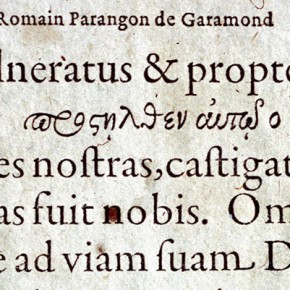 Romain Parangon de Garamond
lneratus & propte
προσῆλθεν αὐτῷ ὁ
es noſtras, caſtigat
as fuit nobis. Om
e ad viam ſuam. D